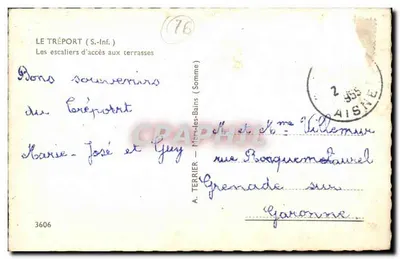 LE TRÉPORT (S.-Inf.)
Les escaliers d'accès aux terrasses
76
Bons souvenirs
du Tréport
Marie-José et Guy
3606
A. TERRIER - Mers-les-Bains (Somme)
2
955
AISNE
M et Mme Villemur
rue Roquemaurel
Grenade sur
Garonne